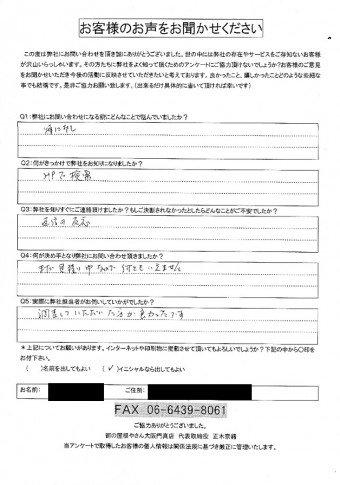 お客様のお声をお聞かせください
この度は弊社にお問い合わせを頂き誠にありがとうございました。世の中には弊社の存在やサービスをご存知ないお客様
が沢山いらっしゃいます。その方たちに弊社をよく知って頂くためのアンケートにご協力頂けないでしょうか？お客様のご意見
をお聞かせいただき今後の活動に反映させていただきたいと考えております。良かったこと、嬉しかったことどのような些細な
事でも結構です。是非ご協力お願い致します。（出来るだけ具体的に書いて頂ければ幸いです）
Q1：弊社にお問い合わせになる前にどんなことで悩んでいましたか？
特になし
Q2：何がきっかけで弊社をお知りになりましたか？
HPで検索
Q3：弊社を知りすぐにご連絡頂けましたか？もしご決断されなかったとしたらどんなことがご不安でしたか？
返信の反応
Q4：何が決め手となり弊社にお問い合わせ頂きましたか？
まだ見積り中なので何ともいえません
Q5：実際に弊社担当者がお伺いしていかがでしたか？
調査していただいた方が良かったです
＊上記についてお願いがあります。インターネットや印刷物に掲載させて頂いてもよろしいでしょうか？下記の中から○印を
お付下さい。
（ ）名前を出してもよい （✓）イニシャルなら出してもよい
お名前： ご住所：
FAX 06-6439-8061
ご協力ありがとうございました。
街の屋根やさん大阪門真店 代表取締役 正木奈緒
※アンケートで取得したお客様の個人情報は関係法規に基づき厳正に管理いたします。